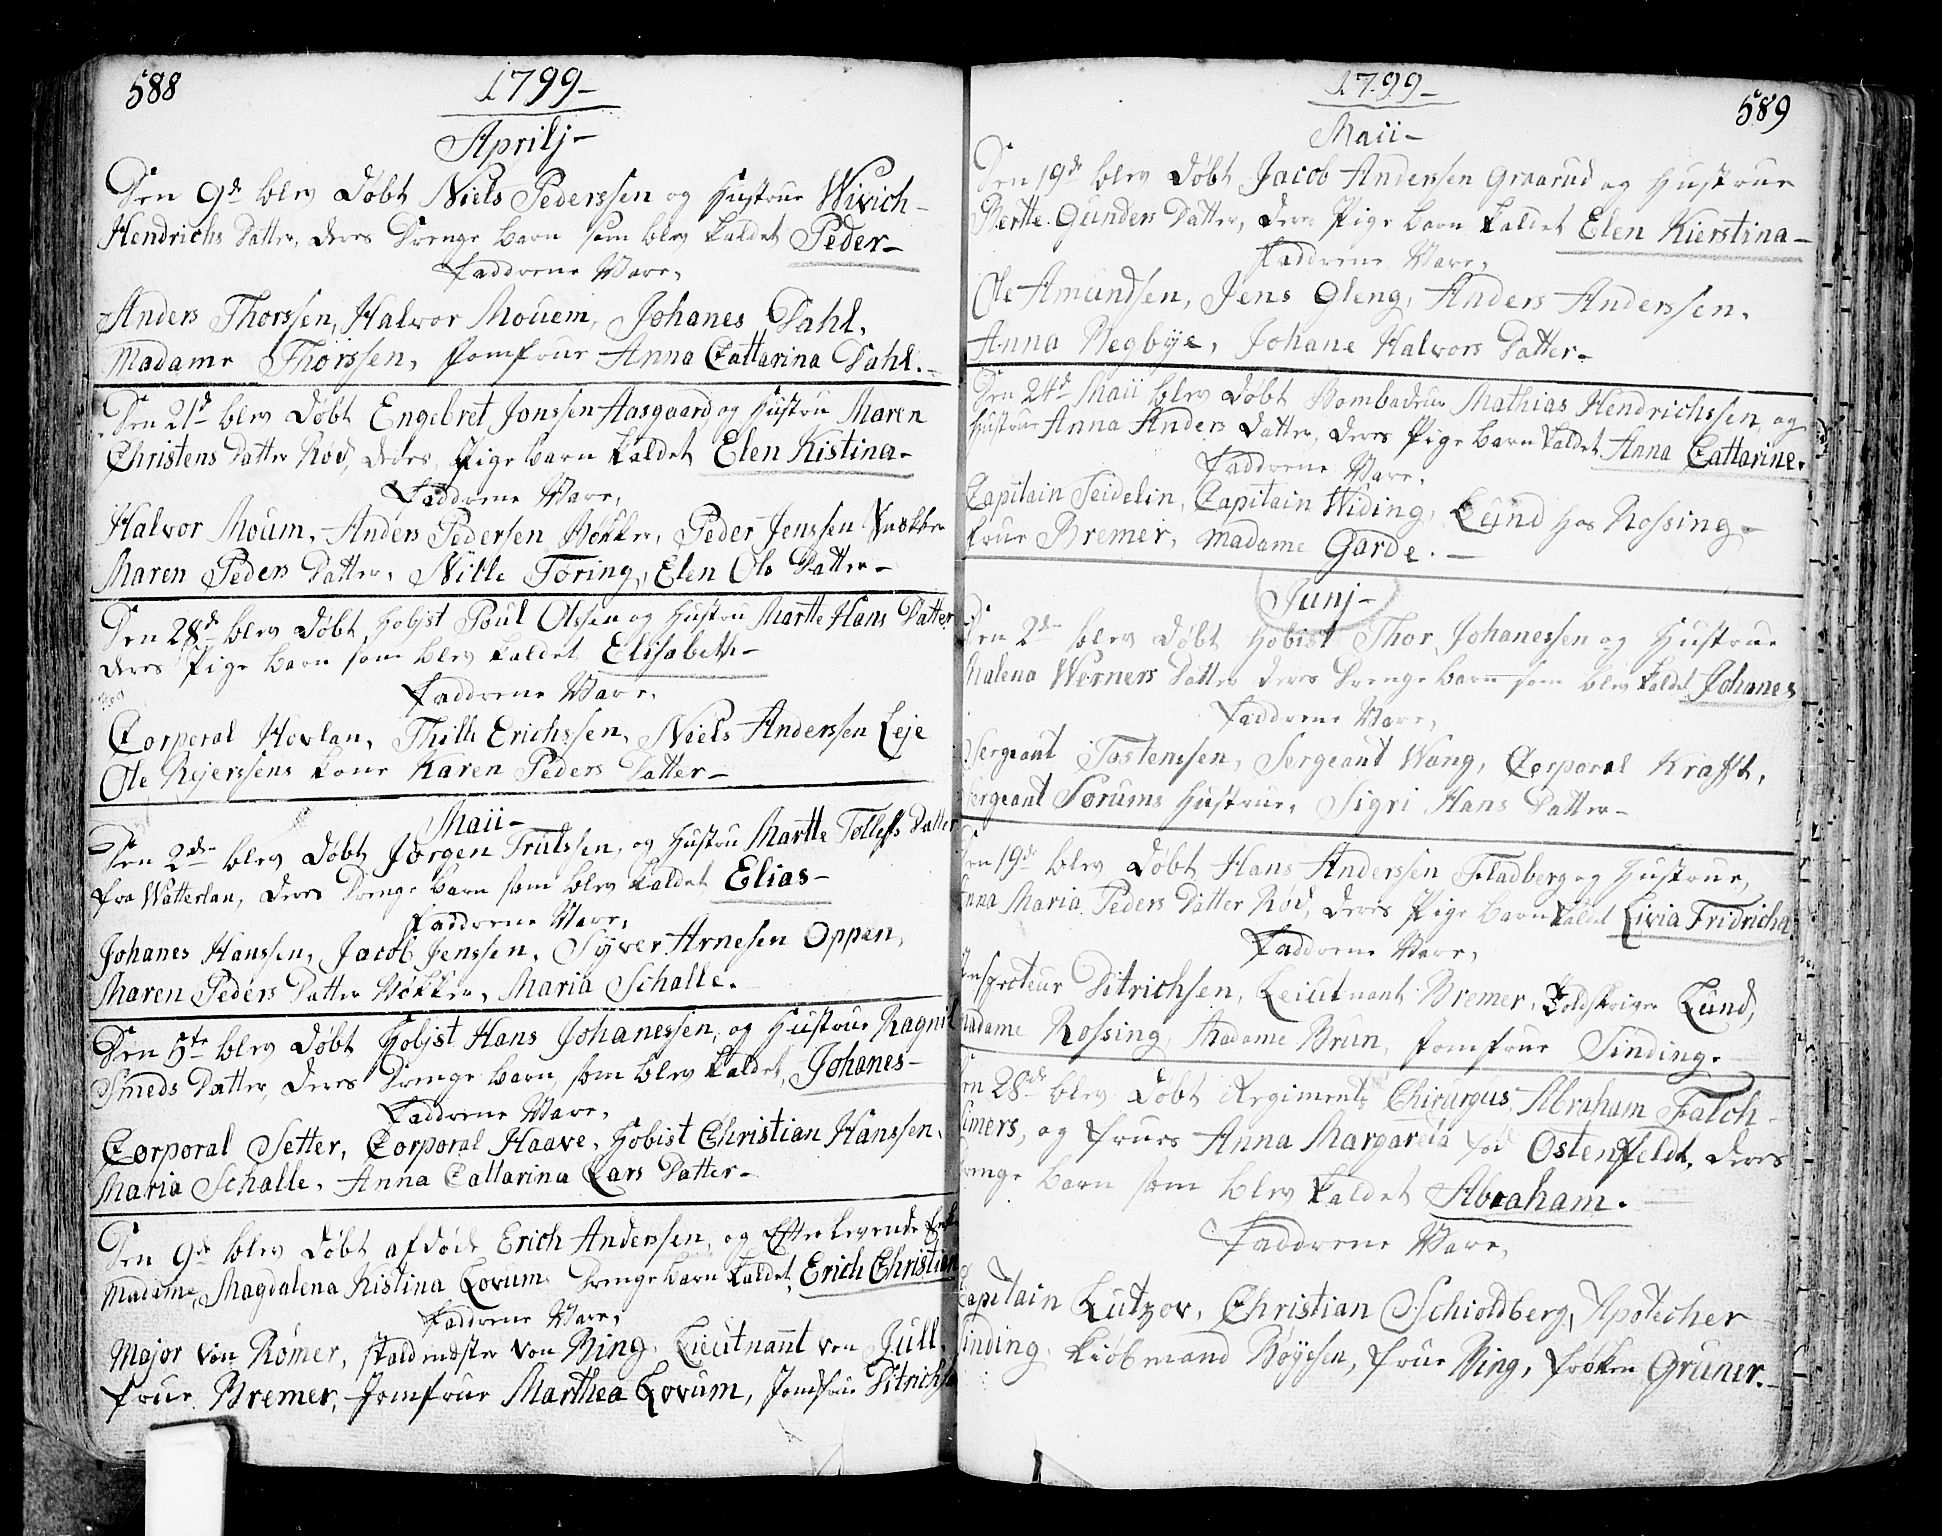 588
1799-
Aprilj-
Den 9de blev Døbt Niels Pederssen og Hustrue Wivich-
Hendrichs Datter, deres Drenge barn som blev kaldet Peder-
Faddrene Vare,
Anders Thorssen, Halvor Mouem, Johanes Dahl,
Madame Thorssen, Jomfrue Anna Cattarina Dahl.-
Den 21d blev Døbt Engebret Jonssen Aasgaard og Hustru Maren
Christens Datter Rød, deres Pige barn kaldet Elen Kistina-
Faddrene Vare,
Halvor Moum, Anders Pedersen Bøkker, Peder Jenssen
Maren Peders Datter, Nille Toring, Elen Ols Datter-
Den 28d blev Døbt Hobist Poul Olssen og Hustru Marte Hans Datter
deres Pige barn som blev kaldet Elisabeth-
Faddrene Vare,
Corporal Hovlan, Thille Erichssen, Niels Anderssen Leje
Ole Rejerssens kone Karen Peders Datter-
Maii-
Den 2de blev Døbt Jørgen Trulssen, og Hustru Martte Tollefs Datter
fra Watterlan, deres Drenge barn som blev kaldet Elias-
Faddrene Vare,
Johanes Hanssen, Jacob Jenssen, Syver Arnesen Oppen,
Maren Peders Datter Bøkker, Maria Schalle.
Den 5te blev Døbt Hobist Hans Johanessen, og Hustrue Ragnil
Smeds Datter, deres Drenge barn, som blev kaldet, Johanes-
Faddrene Vare,
Corporal Setter, Corporal Haave, Hobist Christian Hanssen,
Maria Schalle, Anna Cattarina Lars Datter-
Den 9de blev Døbt afdøde Erich Anderssen, og Efterlevende
Madame, Magdalena Kistina Lovum Drenge barn kaldet, Erich Christian
Faddrene Vare,
Major von Rømer, Staldmester von Bing, Lieutnant von Jull,
frue Bremer, Jomfrue Marthea Lovum, Jomfrue Ditrichs
1799-
589
Maii-
Den 19de blev Døbt Jacob Anderssen Graarud og Hustrue
Bertte Gunders Datter, deres Pige barn kaldet Elen Kierstina-
Faddrene Vare,
Ole Amundsen, Jens Gleng, Anders Anderssen,
Anna Negbye, Johane Halvors Datter-
Den 24d Maii blev Døbt Bombadeur Mathias Hendrichssen, og
Hustrue Anna Anders Datter, deres Pige barn kaldet Anna Cattarine.
Faddrene Vare,
Capitain Seidelin, Capitain Widing, Lund hos Rossing-
frue Bremer, Madame Garde.-
Junj-
Den 2de blev Døbt Hobist Thor Johanessen og Hustrue
Malena Werners Datter deres Drenge barn som blev kaldet Johanes
Faddrene Vare,
Sergeant Tostemsen, Sergeant Wang, Corporal Krafft,
Sergeant Sorums Hustrue, Sigri Hans Datter-
Den 19de blev Døbt Hans Anderssen Fladberg og Hustrue,
Anna Maria Peders Datter Rød, deres Pige barn kaldet Livia Fridricha
Faddrene Vare,
Inspecteur Ditrichsen, Leiutnant Bremer, Toldskriver Lund,
Madame Rossing, Madame Brun, Jomfrue Sinding.
Den 28de blev Døbt Regiments Chirurgus Abraham Falch-
, og frues Anna Margareta fød Ostenfeldt, deres
Drenge barn som blev kaldet Abraham.
Faddrene Vare,
Capitain Lutzov, Christian Schioldberg, Apotecher
Sinding, kiøbmand Bøyesen, frue Bing, frøken Gruner.-